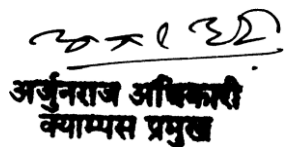 अर्जुनराज अधिकारी
क्याम्पस प्रमुख